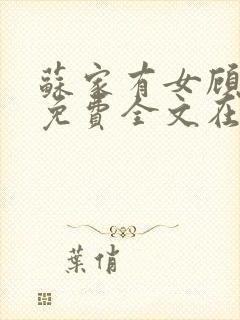 蘇家有女顧
免費全文在
葉俏